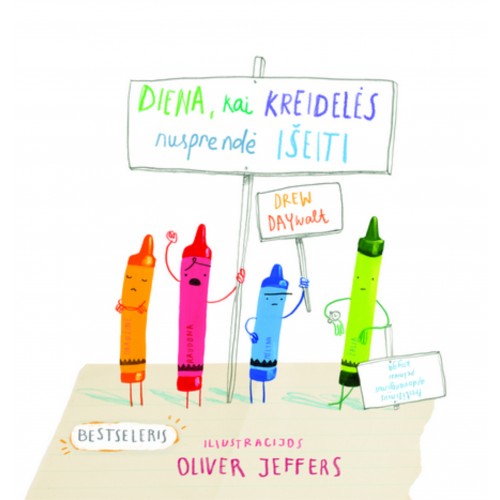 DIENA, kai KREIDELĖS
nusprendė IŠEITI
DREW
DAYwalt
RAUDONA
BESTSELERIS
ILIUSTRACIJOS
OLIVER JEFFERS